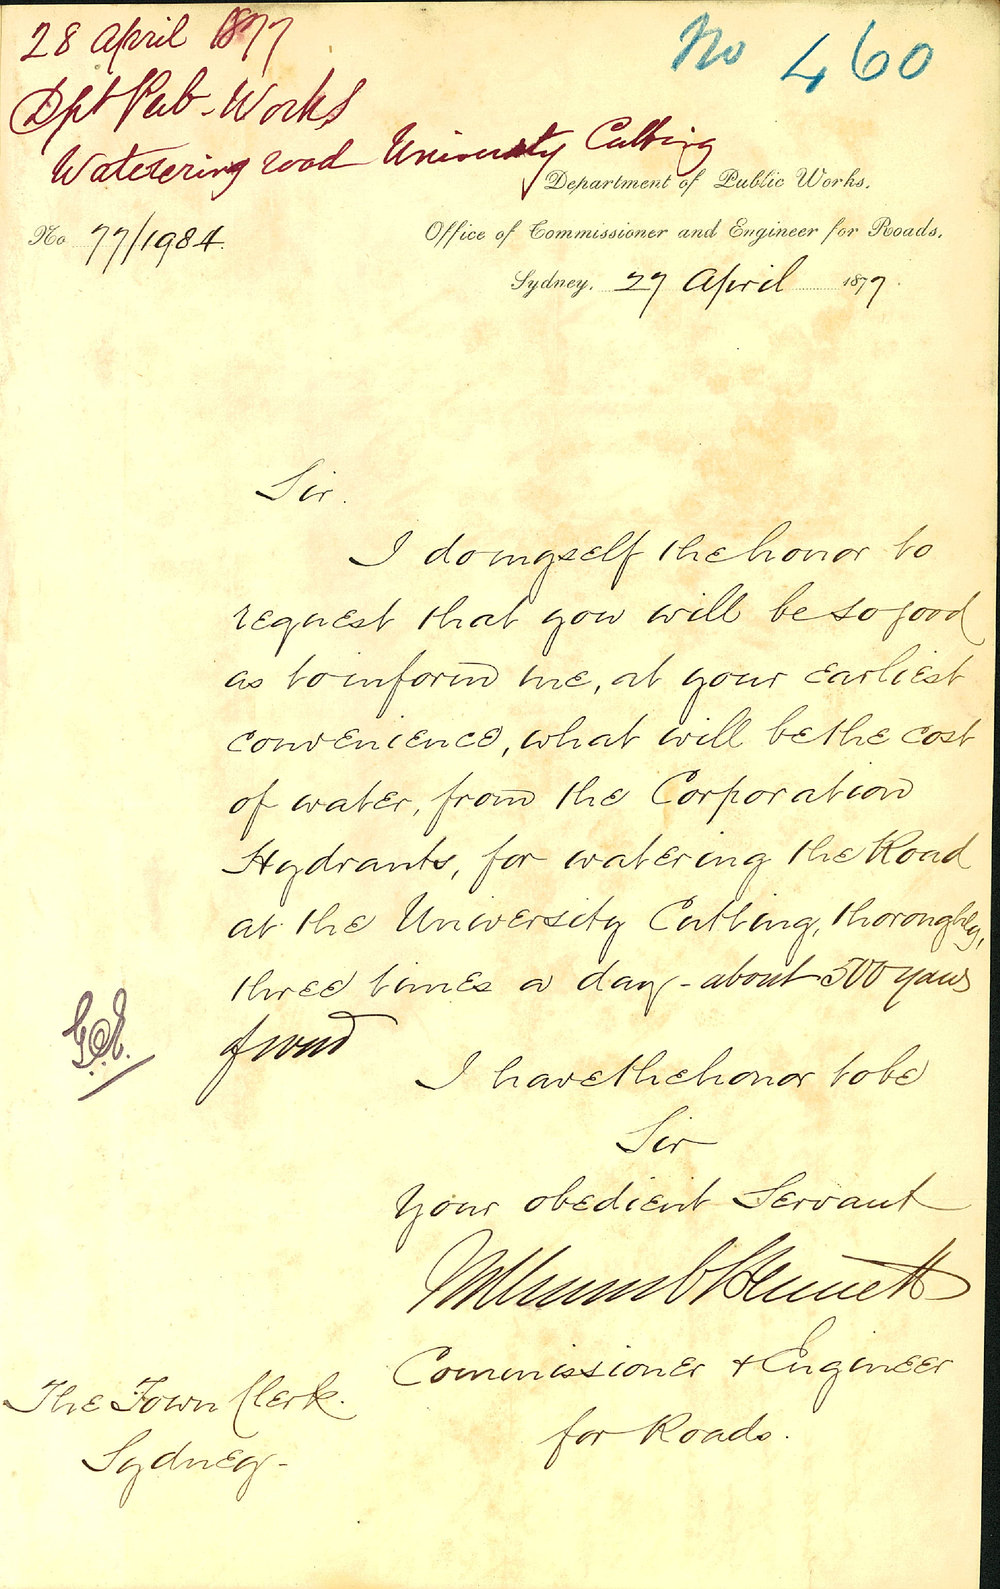 28 April 1877
No 460
Dpt Pub-Works
Waterering road University Cutting
Department of Public Works.
No 77/1984.
Office of Commissioner and Engineer for Roads,
Sydney, 27 April 1877.
Sir.
I do myself the honor to
request that you will be so good
as to inform me, at your earliest
convenience, what will be the cost
of water, from the Corporation
Hydrants, for watering the Road
at the University Cutting, thoroughly,
three times a day - about 500 yards
of road
I have the honor to be
Sir
Your obedient Servant
William C Bennett
Commissioner & Engineer
for Roads.
The Town Clerk.
Sydney-